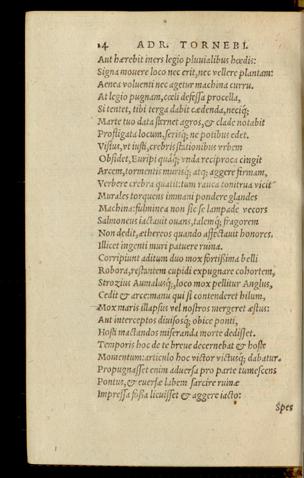 14 ADR. TORNEBI.
Aut hærebit iners legio pluuialibus hœdis:
Signa mouere loco nec erit, nec vellere plantam:
Aenea voluenti nec agetur machina curru.
At legio pugnam, cœli defessa procella,
Si tentet, tibi terga dabit cædenda, neciq́;
Marte tuo data sternet agros, & clade notabit
Profligata locum, serisq́; nepotibus edet.
Visius, vt iusti, crebris stationibus vrbem
Obsidet, Euripi quáq́; vnda reciproca cingit
Arcem, tormentis murisq́; atq; aggere firmam,
Verbere crebra quatit: tum rauca conitrua vicit
Murales torquens immani pondere glandes
Machina: fulminea non sic se lampade vecors
Salmoneus iactauit ouans, talemq́; fragorem
Non dedit, æthereos quando affectauit honores.
Ilicet ingenti muri patuere ruina.
Corripiunt aditum duo mox fortissima belli
Robora, restantem cupidi expugnare cohortem,
Strozius Aumalusq́;, loco mox pellitur Anglus,
Cedit & arce: manu qui si contenderet hilum,
Mox maris illapsus vel nostros mergeret æstus:
Aut interceptos diuisosq́; obice ponti,
Hosti mactandos miseranda morte dedisset.
Temporis hoc de te breue decernebat & hoste
Momentum: articulo hoc victor victusq́; dabatur.
Propugnasset enim aduersa pro parte tumescens
Pontus, & euersæ labem sarcire ruinæ
Impressa fossa licuisset & aggere iacto:
Spes